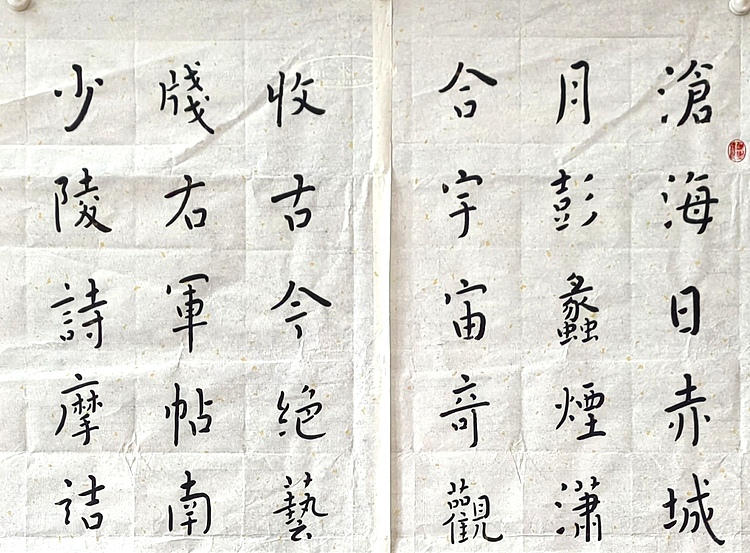 滄海日赤城
月彭蠡煙瀟
合宇宙奇觀
少陵詩摩詰
牋右軍帖南
收古今絕藝